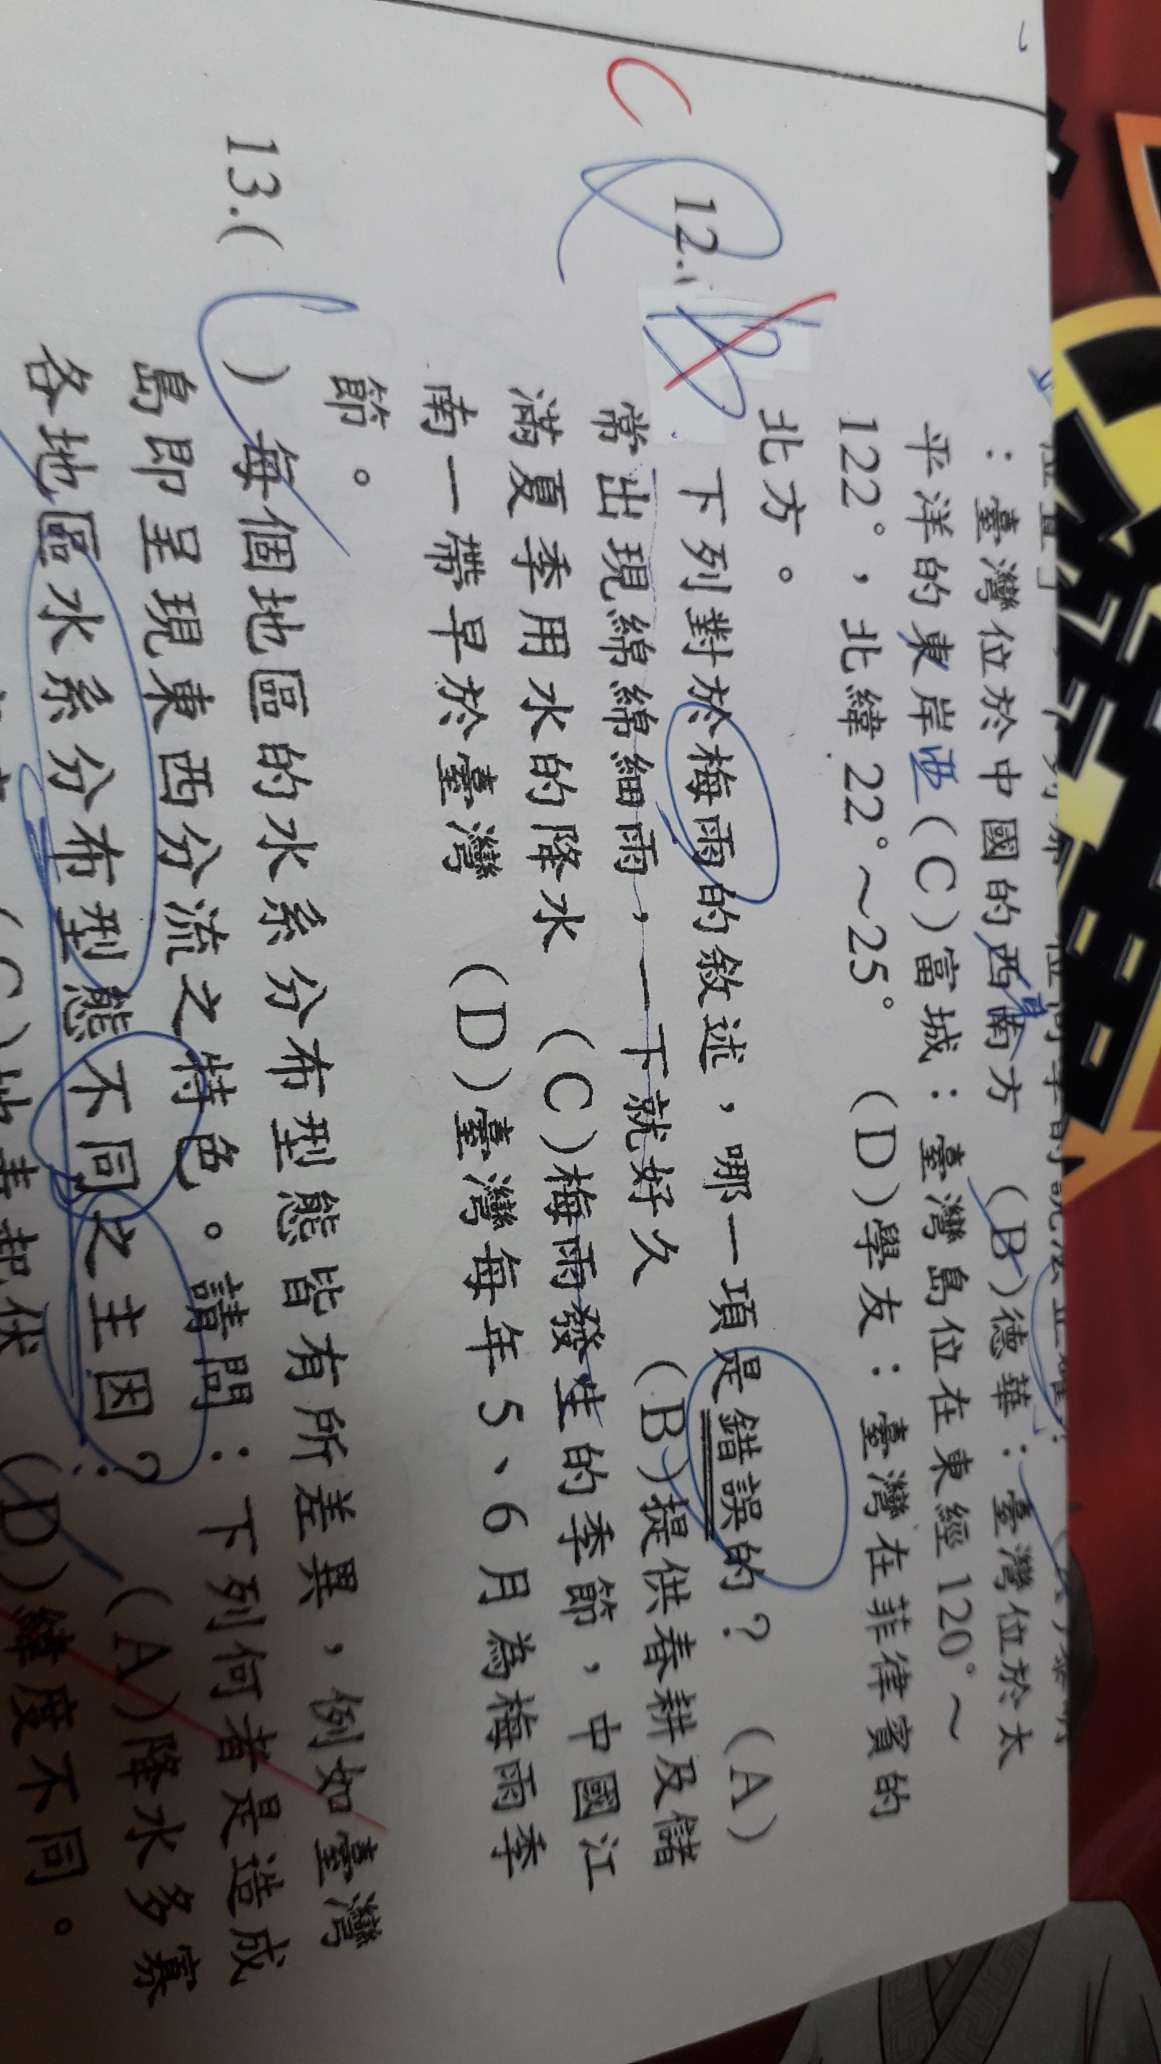 ：臺灣位於中國的西南方 (B)德華：臺灣位於太
平洋的東岸西(C)富城：臺灣島位在東經120°～
122°，北緯22°～25° (D)學友：臺灣在菲律賓的
北方。
C 12.( B 下列對於梅雨的敘述，哪一項是錯誤的？ (A)
常出現綿綿細雨，一下就好久 (B)提供春耕及儲
滿夏季用水的降水 (C)梅雨發生的季節，中國江
南一帶早於臺灣 (D)臺灣每年5、6月為梅雨季
節。
13.( ) 每個地區的水系分布型態皆有所差異，例如臺灣
島即呈現東西分流之特色。請問：下列何者是造成
各地區水系分布型態不同之主因？ (A)降水多寡
(C)地 起伏 (D)緯度不同。